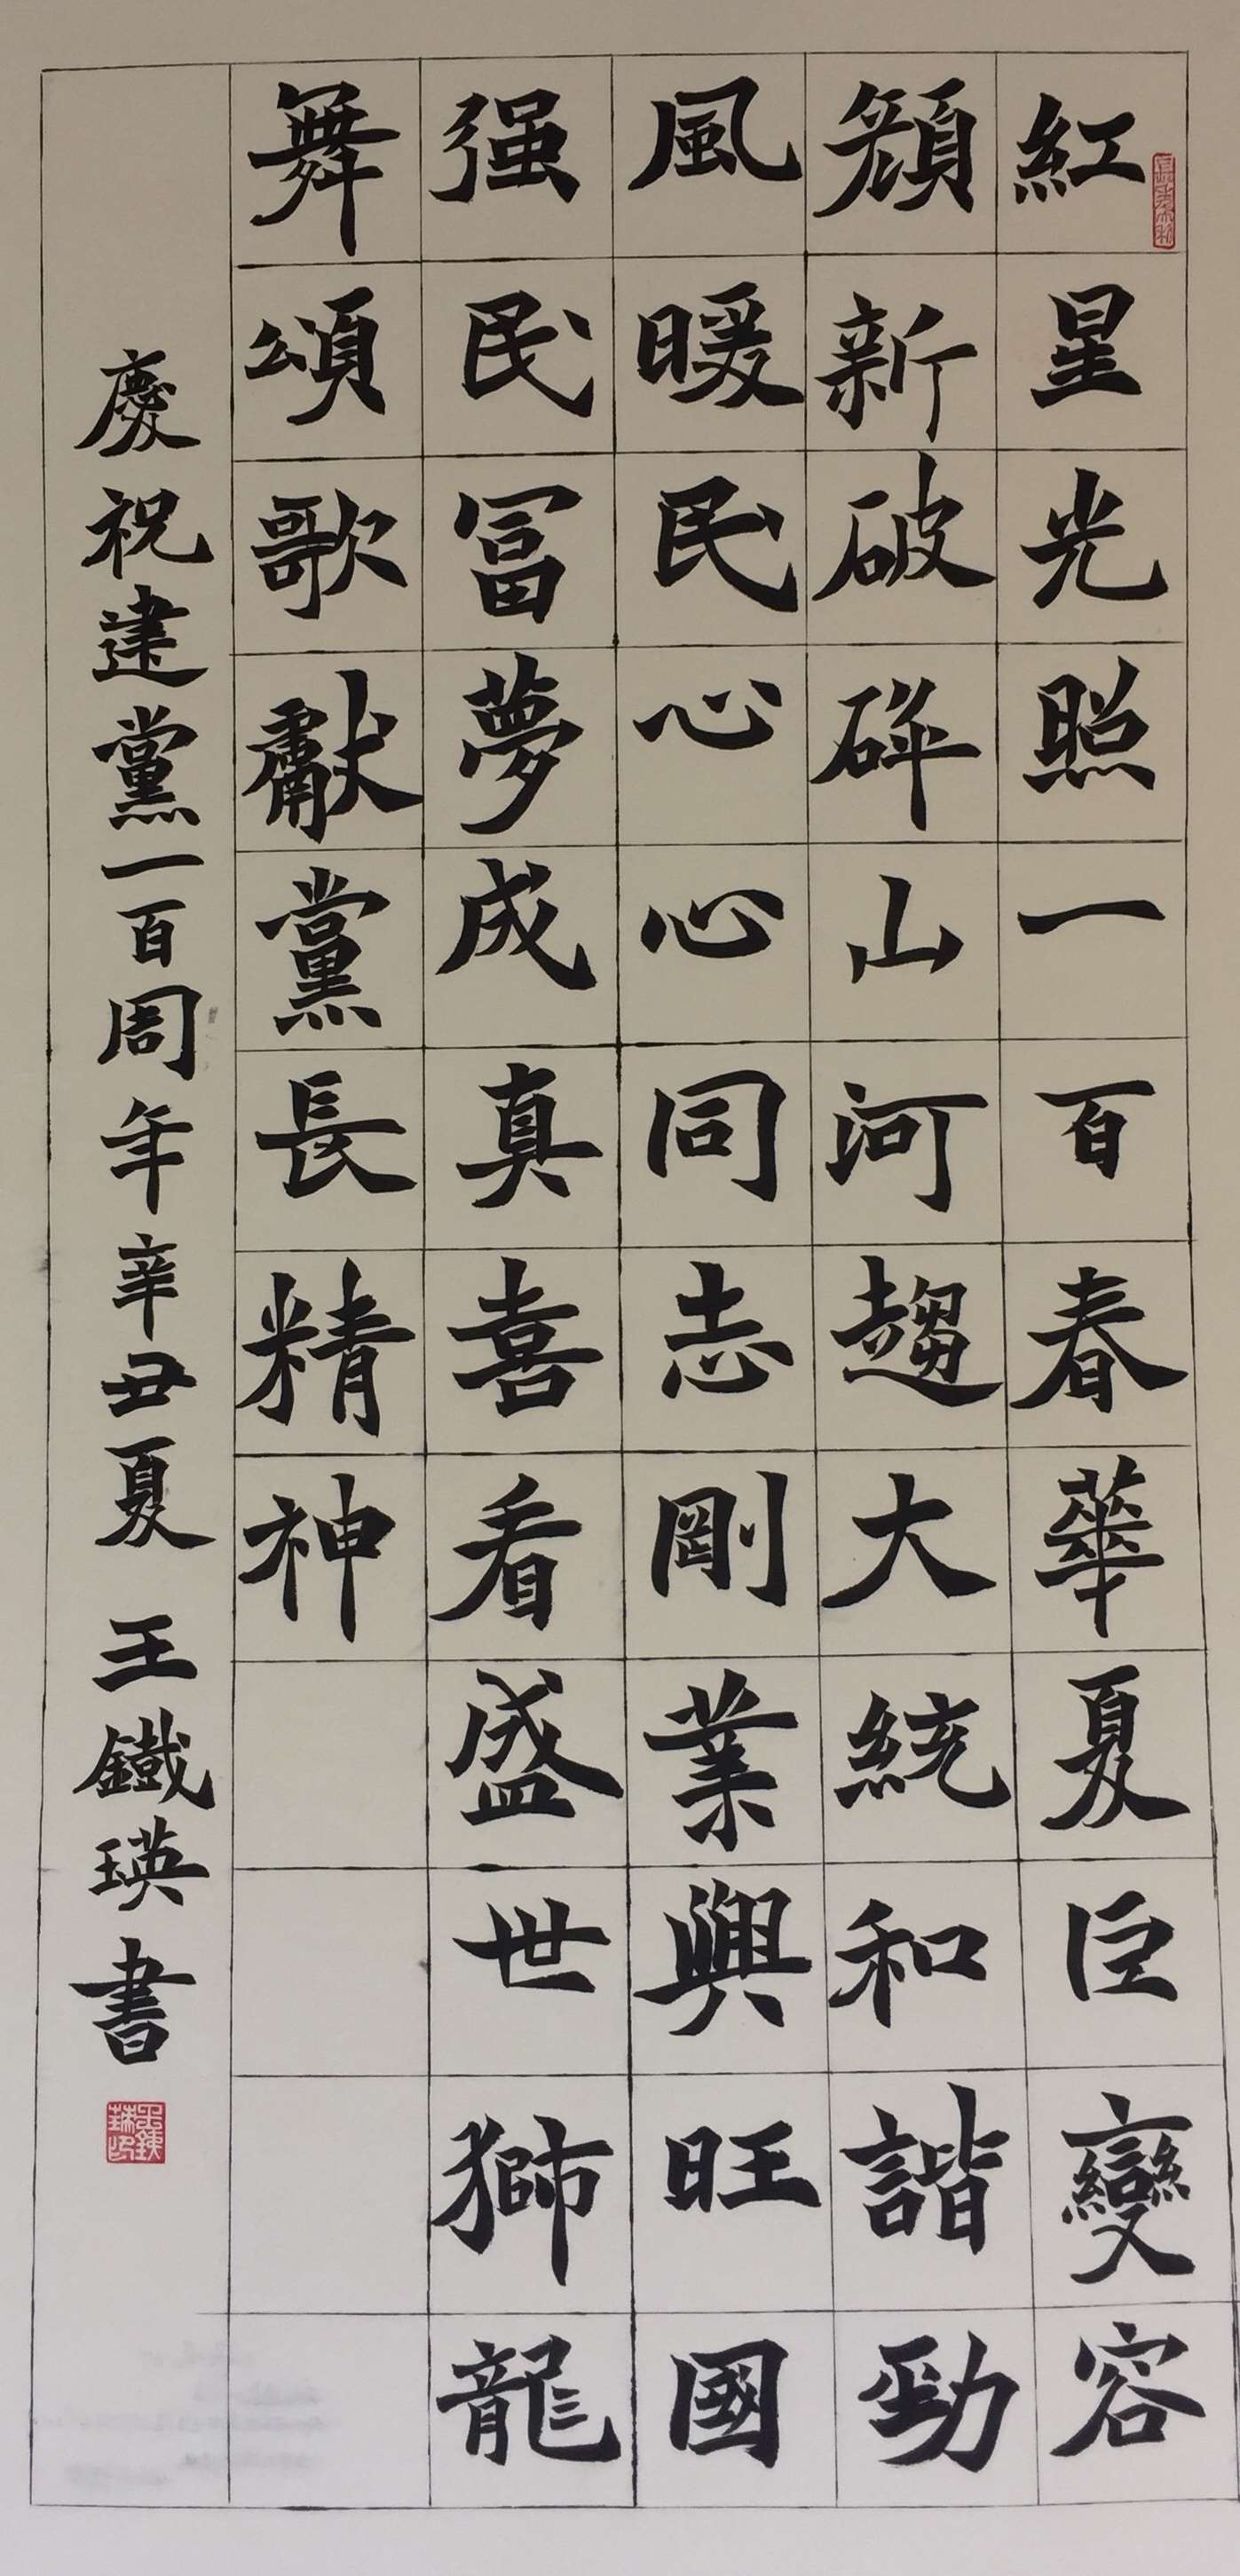 紅星光照一百春華夏巨變容
顔新破碎山河趨大統和諧勁
風暖民心心同志剛業興旺國
强民冨夢成真喜看盛世獅龍
舞頌歌獻黨長精神
慶祝建黨一百周年辛丑夏 王鐵瑛書